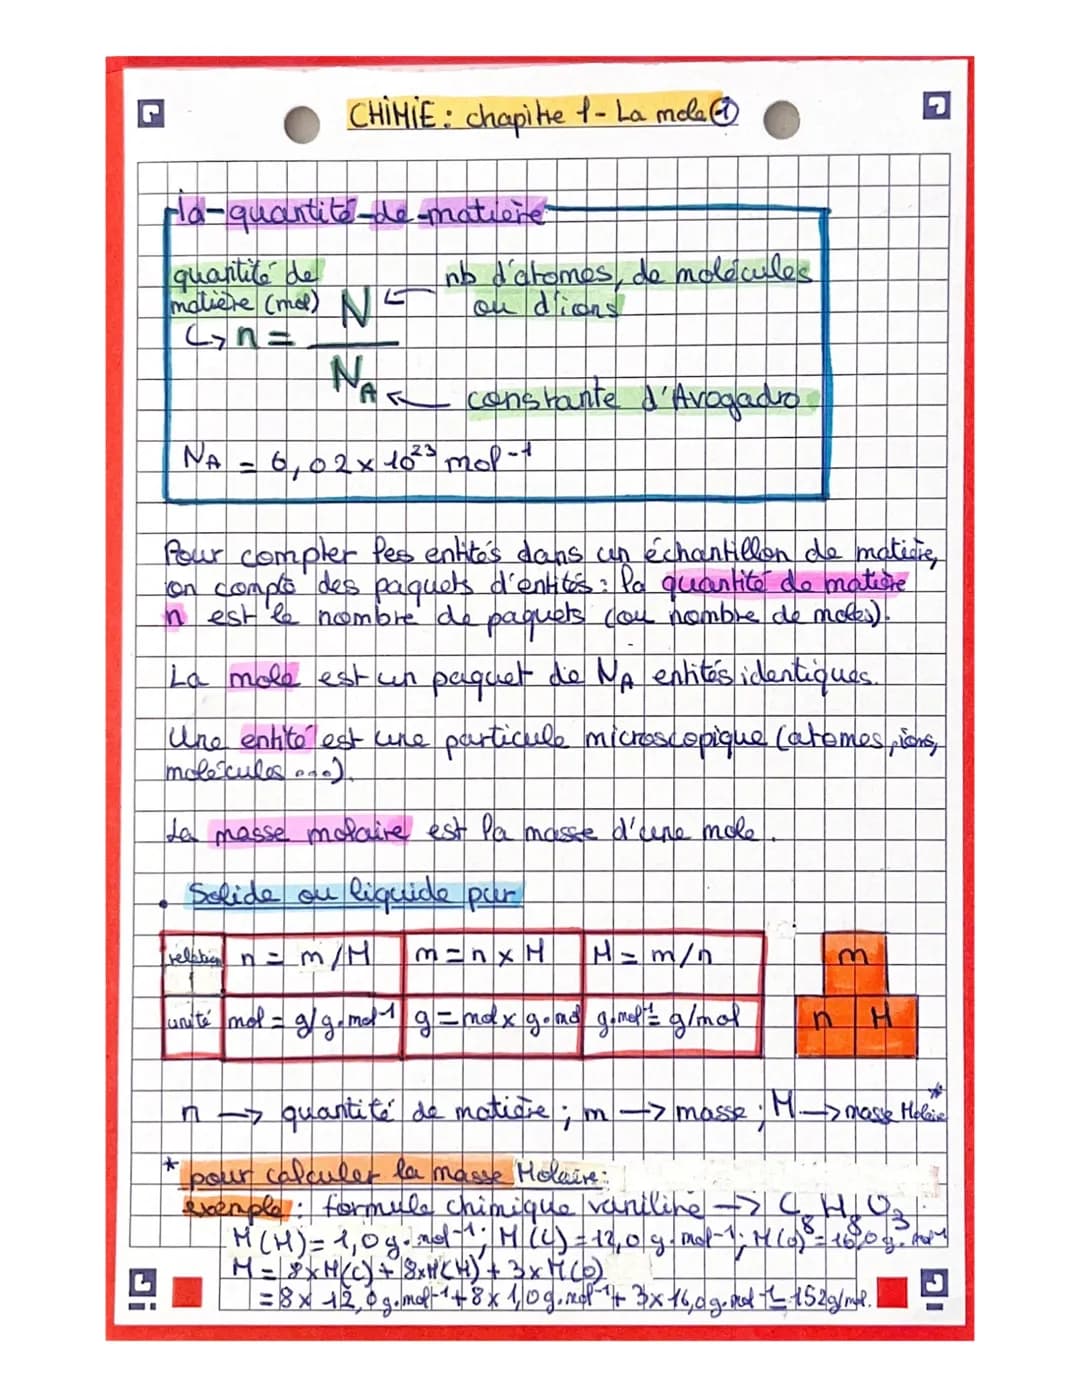 CHIMIE : chapitre 1 - La mole ①
la quantité de matière
quantité de
matière (mol)
nb d'atomes, de molécules
ou d'ions
n = N / NA
constante d'Avogadro
NA = 6,02 x 10²³ mol⁻¹
Pour compter les entités dans un échantillon de matière,
on compte des paquets d'entités : la quantité de matière
n est le nombre de paquets (ou nombre de moles).
La mole est un paquet de NA entités identiques.
Une entité est une particule microscopique (atomes, ions,
molécules ...).
La masse molaire est la masse d'une mole.
• Solide ou liquide pur
relation n = m/M m = n x M M = m/n
unité mol = g/g.mol⁻¹ g = mol x g.mol g.mol⁻¹ = g/mol
m
n M
n → quantité de matière ; m → masse ; M → masse Molaire*
* pour calculer la masse Molaire :
exemple : formule chimique vanilline → C₈H₈O₃
M(H) = 1,0 g.mol⁻¹ ; M(C) = 12,0 g.mol⁻¹ ; M(O) = 16,0 g.mol⁻¹
M = 8xM(C) + 8xM(H) + 3xM(O)
= 8 x 12,0 g.mol⁻¹ + 8 x 1,0 g.mol⁻¹ + 3x16,0 g.mol⁻¹ = 152g/mol.